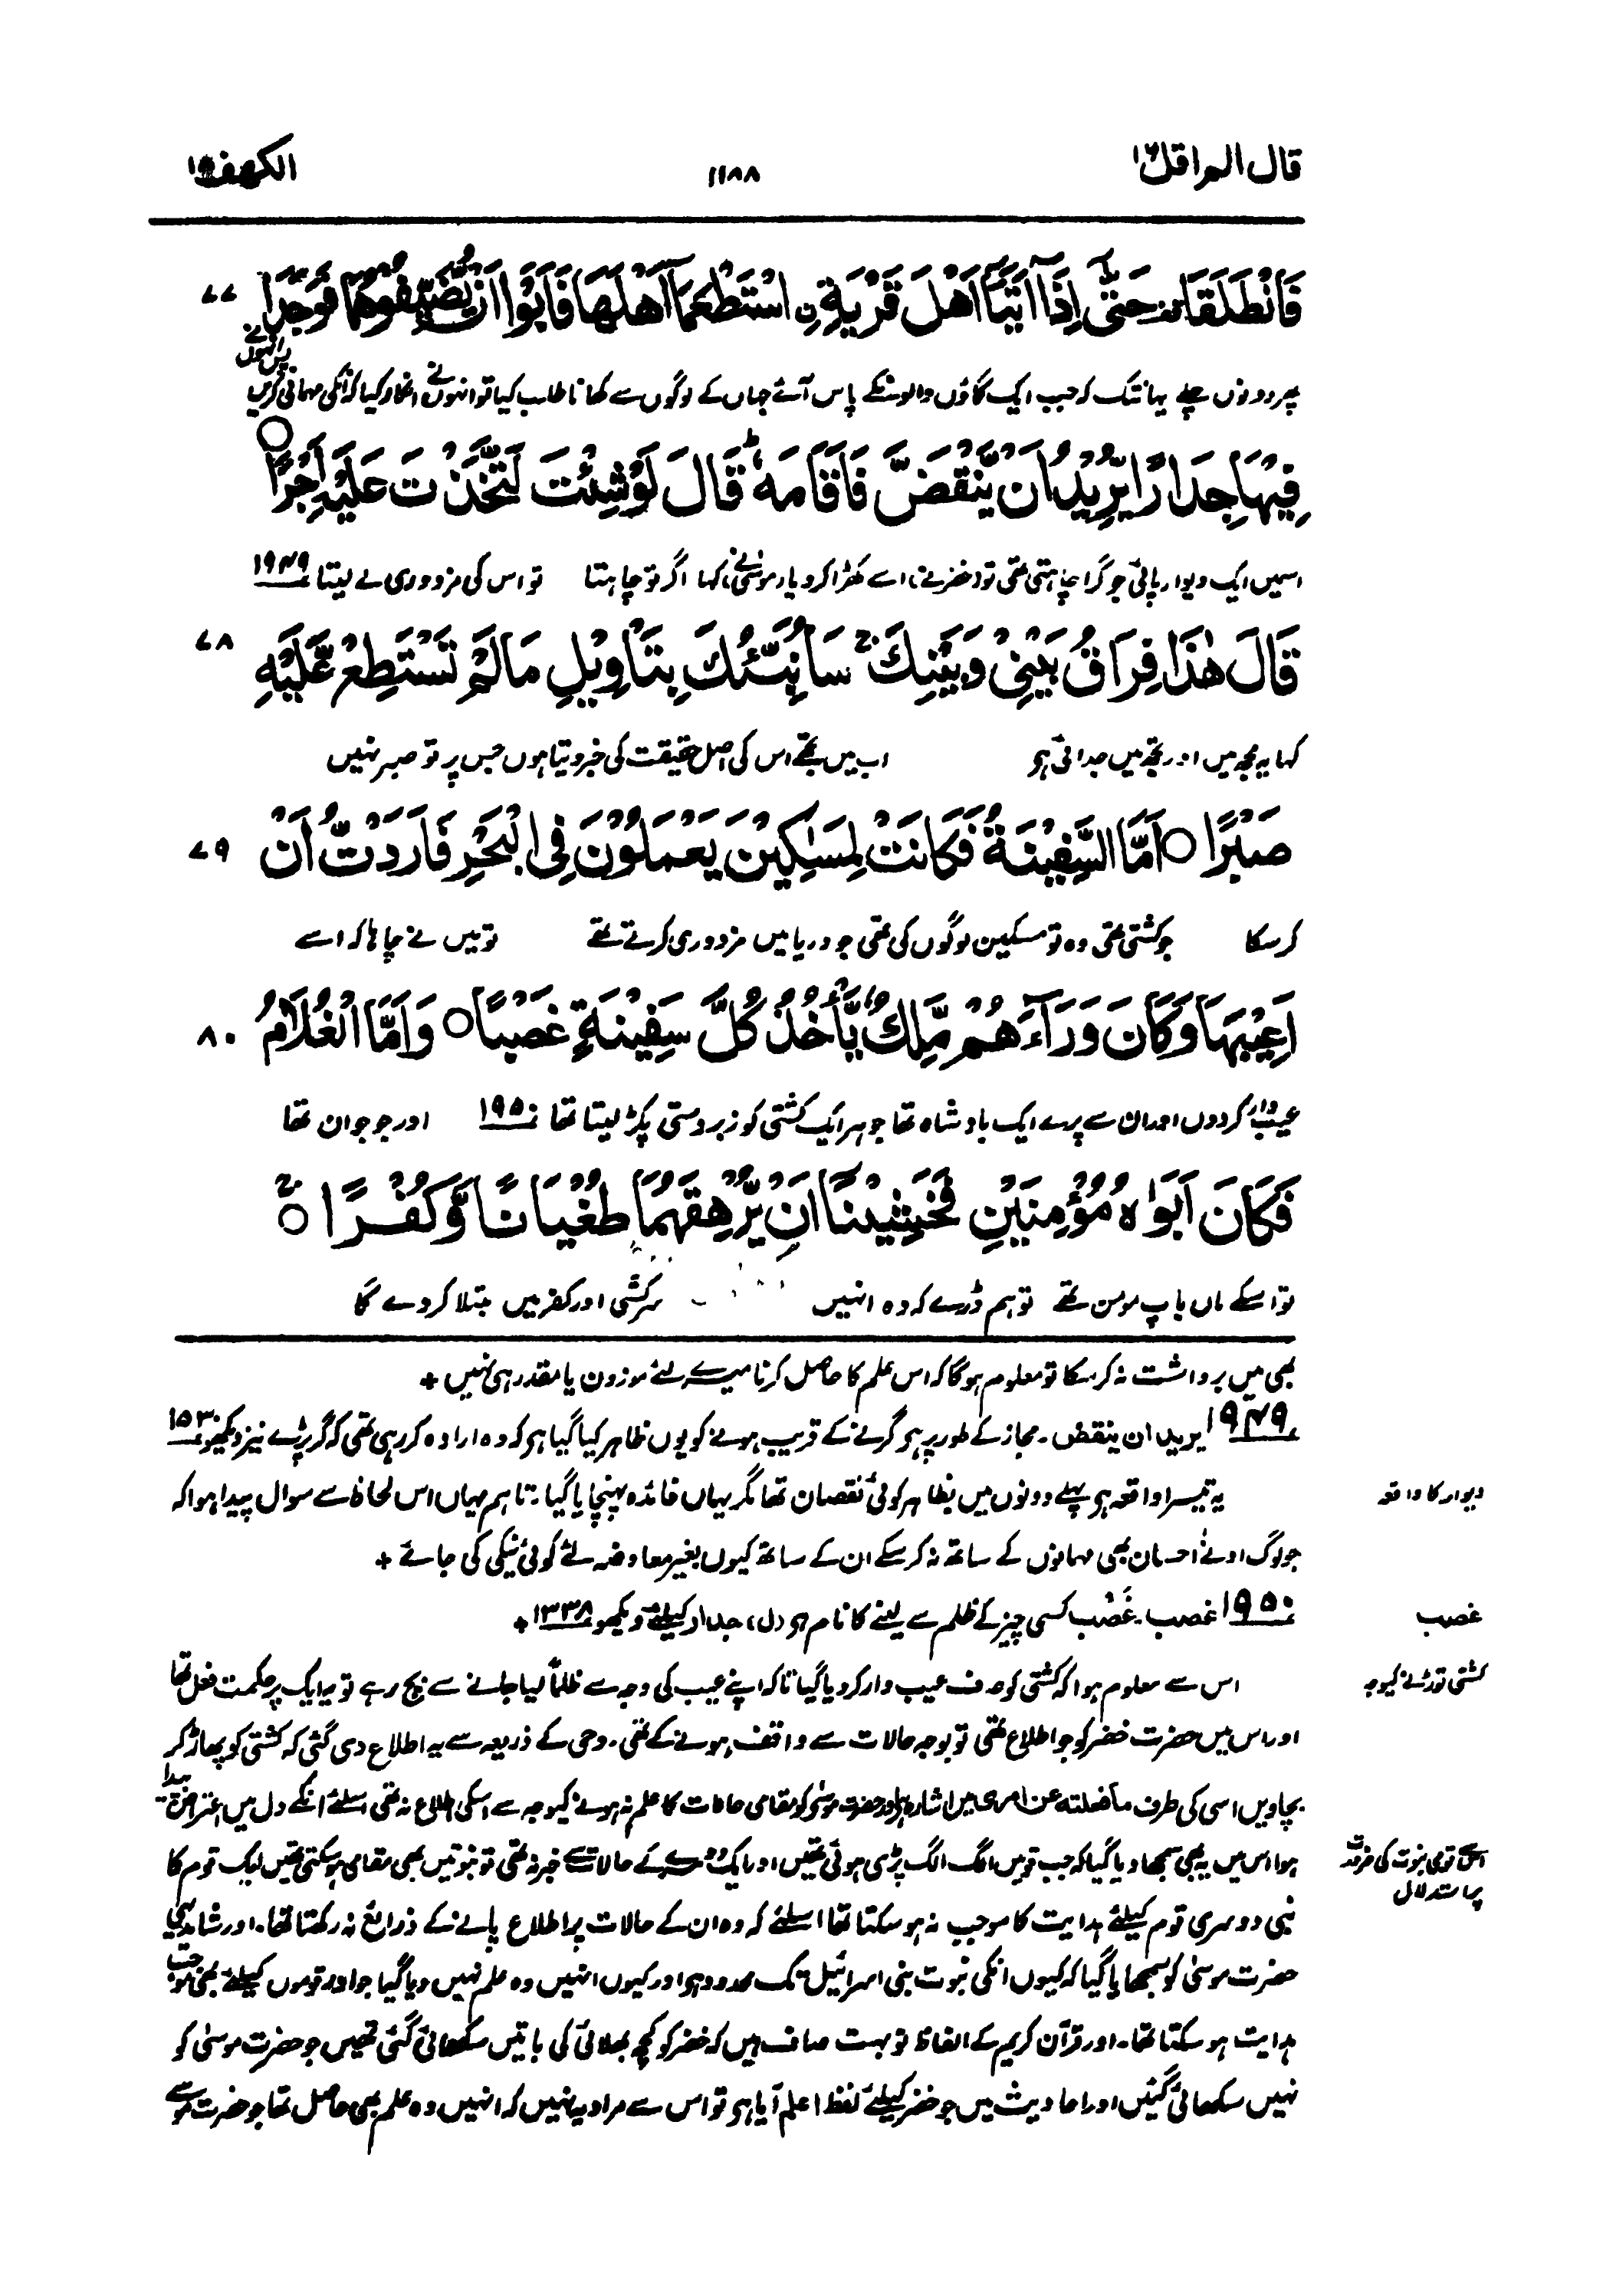 قال الم اقل ۱۶
۱۱۸۸
الکھف ۱۸
فَانْطَلَقَا ۥ حَتّٰۤی اِذَاۤ اَتَیَاۤ اَهْلَ قَرْیَةِ ِۨ اسْتَطْعَمَاۤ اَهْلَهَا فَاَبَوْا اَنْ یُّضَیِّفُوْهُمَا فَوَجَدَا
۷۷
پھر دونوں چلے یہانتک کہ جب ایک گاؤں والوں کے پاس آئے جہاں کے لوگوں سے کھانا طلب کیا تو انہوں نے انکار کیا کہ انکی مہمانی کریں پس انہوں نے
فِیْهَا جِدَارًا یُّرِیْدُ اَنْ یَّنْقَضَّ فَاَقَامَهٗ ؕ قَالَ لَوْ شِئْتَ لَتَّخَذْتَ عَلَیْهِ اَجْرًا ○
اسمیں ایک دیوار پائی جو گرا چاہتی تھی تو (خضر نے) اسے کھڑا کر دیا (موسیٰ نے) کہا اگر تو چاہتا تو اس کی مزدوری لے لیتا ۱۹۴۹
قَالَ هٰذَا فِرَاقُ بَیْنِیْ وَبَیْنِكَ ۚ سَاُنَبِّئُكَ بِتَاْوِیْلِ مَا لَمْ تَسْتَطِعْ عَّلَیْهِ
۷۸
کہا یہ مجھ میں اور تجھ میں جدائی ہو اب میں تجھے اس کی اصل حقیقت کی خبر دیتا ہوں جس پر تو صبر نہیں
صَبْرًا ○ اَمَّا السَّفِیْنَةُ فَكَانَتْ لِمَسٰكِیْنَ یَعْمَلُوْنَ فِی الْبَحْرِ فَاَرَدْتُّ اَنْ
۷۹
کر سکا جو کشتی تھی وہ تو مسکین لوگوں کی تھی جو دریا میں مزدوری کرتے تھے تو میں نے چاہا کہ اسے
اَعِیْبَهَا وَكَانَ وَرَآءَهُمْ مَّلِكٌ یَّاْخُذُ كُلَّ سَفِیْنَةٍ غَصْبًا ○ وَاَمَّا الْغُلٰمُ
۸۰
عیب دار کردوں اور ان سے پرے ایک بادشاہ تھا جو ہر ایک کشتی کو زبردستی پکڑ لیتا تھا ۱۹۵۰ اور جو جوان تھا
فَكَانَ اَبَوٰهُ مُؤْمِنَیْنِ فَخَشِیْنَاۤ اَنْ یُّرْهِقَهُمَا طُغْیَانًا وَّكُفْرًا ○ۚ
تو اسکے ماں باپ مومن تھے تو ہم ڈرے کہ وہ انہیں سرکشی اور کفر میں مبتلا کردے گا
بھی میں برداشت نہ کرسکا تو معلوم ہوگا کہ اس علم کا حاصل کرنا میرے لئے موزون یا مقدر ہی نہیں +
۱۹۴۹ یرید ان ینقض۔ مجاز کے طور پر ہی گرنے کے قریب ہونے کو یوں ظاہر کیا گیا ہی کہ وہ ارادہ کر رہی تھی کہ گر پڑے نیز دیکھو ۱۵۳
دیوار کا واقعہ
یہ تیسرا واقعہ ہی پہلے دونوں میں بظاہر کوئی نقصان تھا مگر یہاں فائدہ پہنچایا گیا۔ تاہم یہاں اس لحاظ سے سوال پیدا ہوا کہ
جو لوگ ادنےٰ احسان بھی مہمانوں کے ساتھ نہ کر سکے ان کے ساتھ کیوں بغیر معاوضہ لئے کوئی نیکی کی جائے +
غصب
۱۹۵۰ غصب۔ غَصْب کسی چیز کے ظلم سے لینے کا نام ہو (ل)، جدار کیلئے دیکھو ۱۳۳۸ +
کشتی توڑنے کیوجہ
اس سے معلوم ہوا کہ کشتی کو صرف عیب وار کردیا گیا تاکہ اپنے عیب کی وجہ سے ظلماً لیا جانے سے بچ رہے تو یہ ایک پر حکمت فعل تھا
اور اس میں حضرت خضر کو جو اطلاع تھی تو بوجہ حالات سے واقف ہونے کے تھی۔ وحی کے ذریعہ سے یہ اطلاع دی گئی کہ کشتی کو پھاڑ کر
بچاویں اسی کی طرف مافعلته عن امری میں اشارہ ہی اور حضرت موسیٰ کو مقامی حالات کا علم نہ ہونے کیوجہ سے اسکی اطلاع نہ تھی اسلئے انکے دل میں اعتراض پیدا
اس قومی نبوت کی ضرورت پر استدلال
ہوا اس میں یہ بھی سمجھا دیا گیا کہ جب قومیں الگ الگ پڑی ہوئی تھیں اور ایک دوسرے کے حالات سے خبر نہ تھی تو نبوتیں بھی مقامی ہوسکتی تھیں ایک قوم کا
نبی دوسری قوم کیلئے ہدایت کا موجب نہ ہوسکتا تھا اسلئے کہ وہ ان کے حالات پر اطلاع پانے کے ذرائع نہ رکھتا تھا۔ اور شاید یہی
حضرت موسیٰ کو سمجھایا گیا کہ کیوں انکی نبوت بنی اسرائیل تک محدود ہو اور کیوں انہیں وہ علم نہیں دیا گیا جو اور قوموں کیلئے بھی موجب
ہدایت ہو سکتا تھا۔ اور قرآن کریم کے الفاظ تو بہت صاف ہیں کہ خضر کو کچھ بھلائی کی باتیں سکھائی گئی تھیں جو حضرت موسیٰ کو
نہیں سکھائی گئیں اور احادیث میں جو خضر کیلئے لفظ اعلم آیا ہو تو اس سے مراد یہ نہیں کہ انہیں وہ علم بھی حاصل تھا جو حضرت موسےٰ